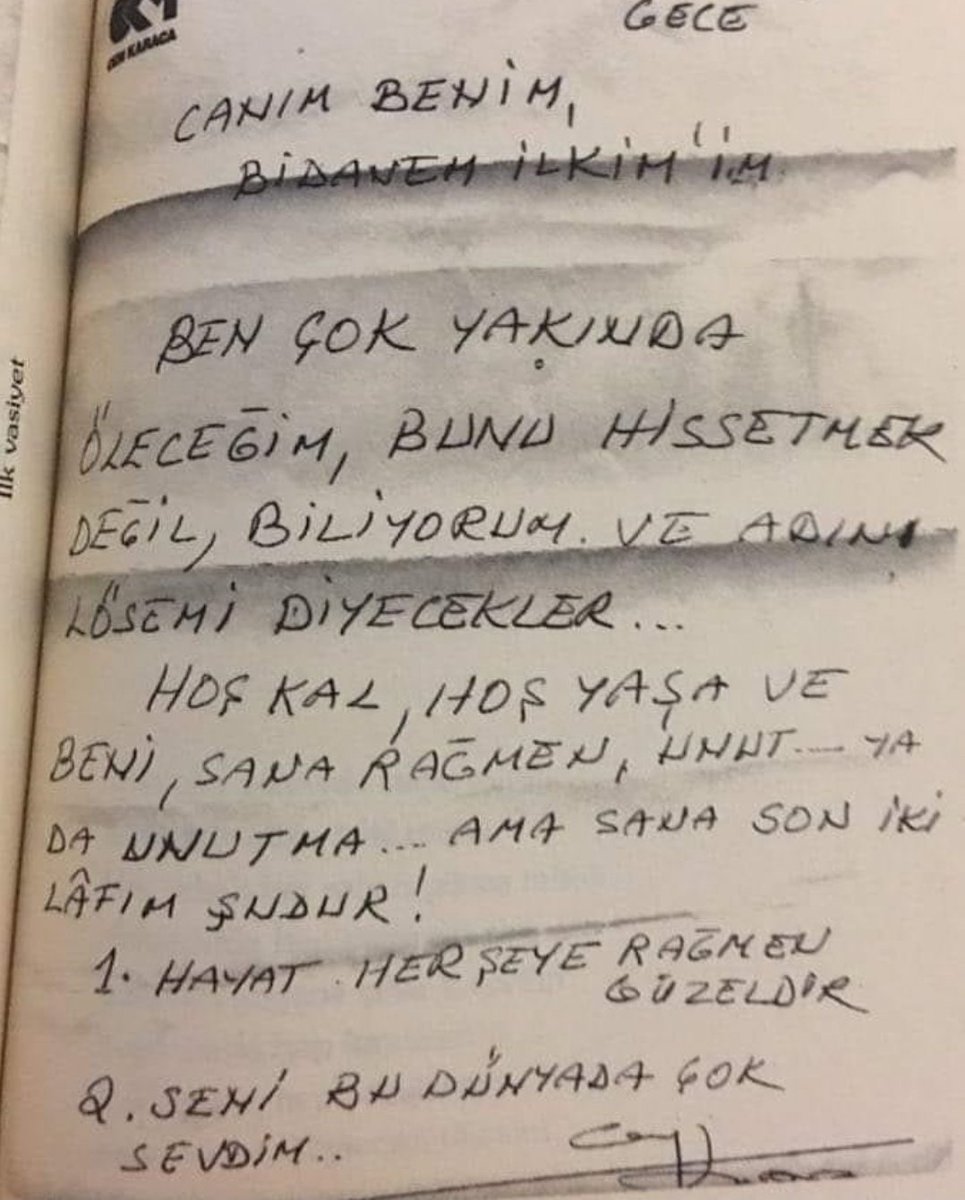 CEM KARACA
GECE
CANIM BENİM,
BİDANEM İLKİM'İM
BEN ÇOK YAKINDA
ÖLECEĞİM, BUNU HİSSETMEK
DEĞİL, BİLİYORUM. VE ADINI
LÖSEMİ DİYECEKLER...
HOŞ KAL, HOŞ YAŞA VE
BENİ, SANA RAĞMEN, UNUT.... YA
DA UNUTMA... AMA SANA SON İKİ
LÂFIM ŞUDUR!
1. HAYAT HERŞEYE RAĞMEN
GÜZELDİR
2. SENİ BU DÜNYADA ÇOK
SEVDİM..
İlk vasiyet